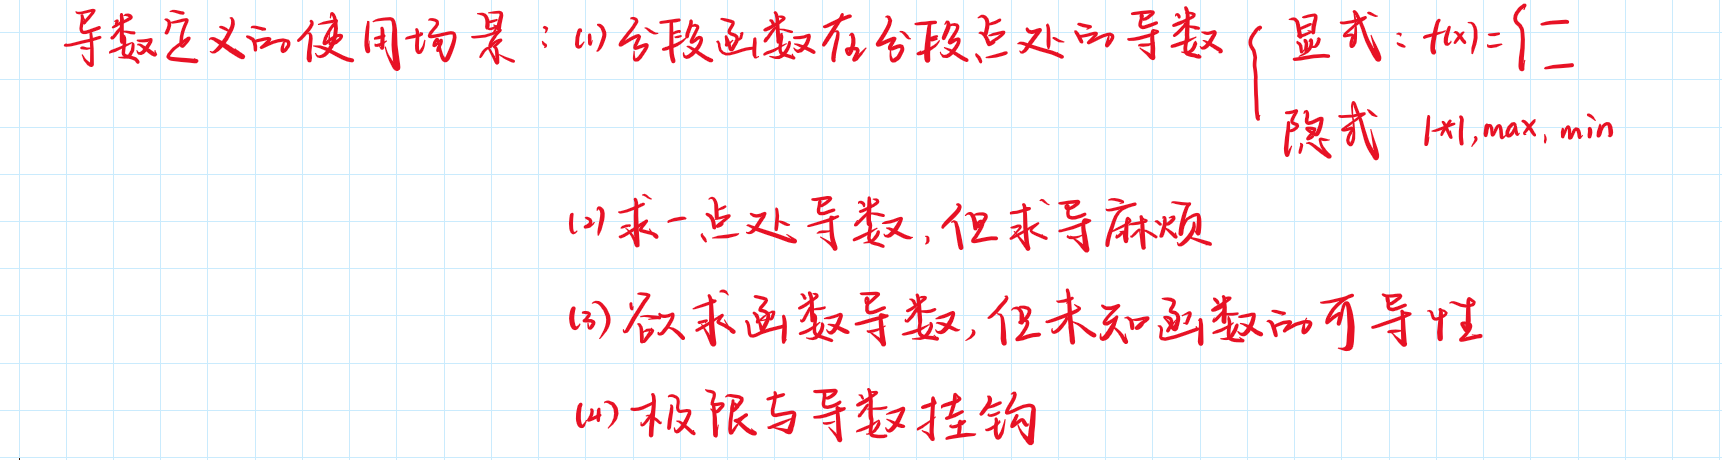 导数定义的使用场景：(1)分段函数在分段点处的导数 { 显式：f(x)={二
隐式 |*|,max, min
(2)求一点处导数,但求导麻烦
(3)欲求函数导数,但未知函数的可导性
(4)极限与导数挂钩